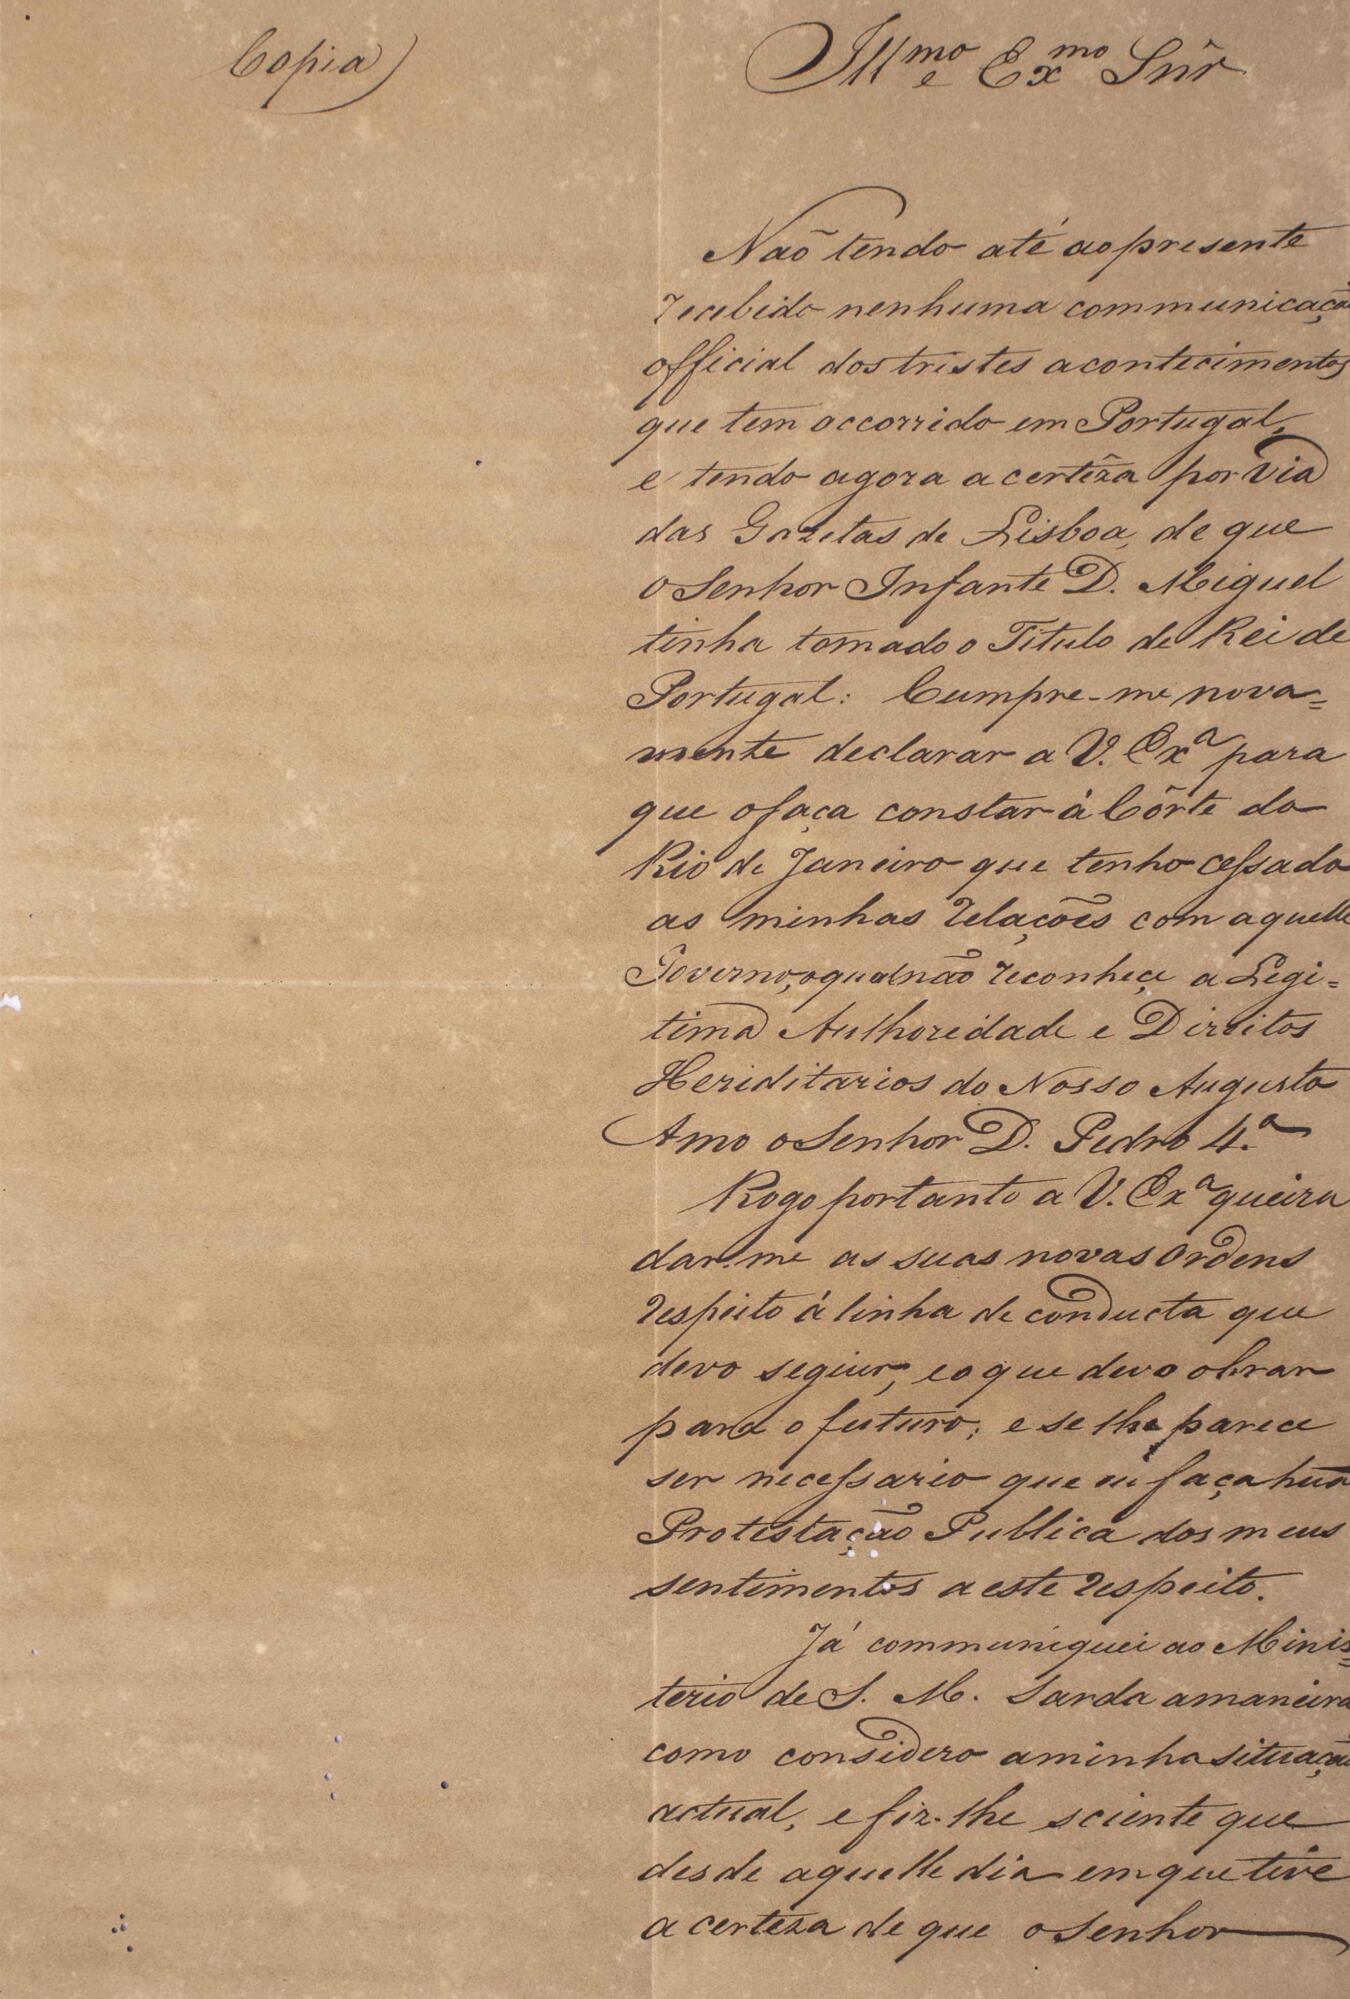 Copia
Ill.mo e Ex.mo Snr̃
Naõ tendo até ao presente
recebido nenhuma communicaçaõ
official dos tristes acontecimentos
que tem occorrido em Portugal,
e tendo agora a certêza por via
das Gazetas de Lisboa, de que
o Senhor Infante D. Miguel
tinha tomado o Titulo de Rei de
Portugal: Cumpre-me nova=
mente declarar a V. Exª para
que o faça constar á Côrte do
Rio de Janeiro que tenho cessado
as minhas relaçoẽs com aquelle
Governo, o qual naõ reconhece a Legi=
tima Authoridade e Direitos
Heriditarios do Nosso Augusto
Amo o Senhor D. Pedro 4.º
Rogo portanto a V. Exª queira
dar-me as suas novas Ordens
respeito á linha de conducta que
devo seguir, e o que devo obrar
para o futuro; e se lhe parece
ser necessario que eu faça huã
Protestaçaõ Publica dos meus
sentimentos a este respeito.
Já communiquei ao Minis=
terio de S. M. Sarda a maneira
como considero a minha situaçaõ
actual, e fiz-lhe sciente que
desde aquelle dia em que tive
a certeza de que o Senhor